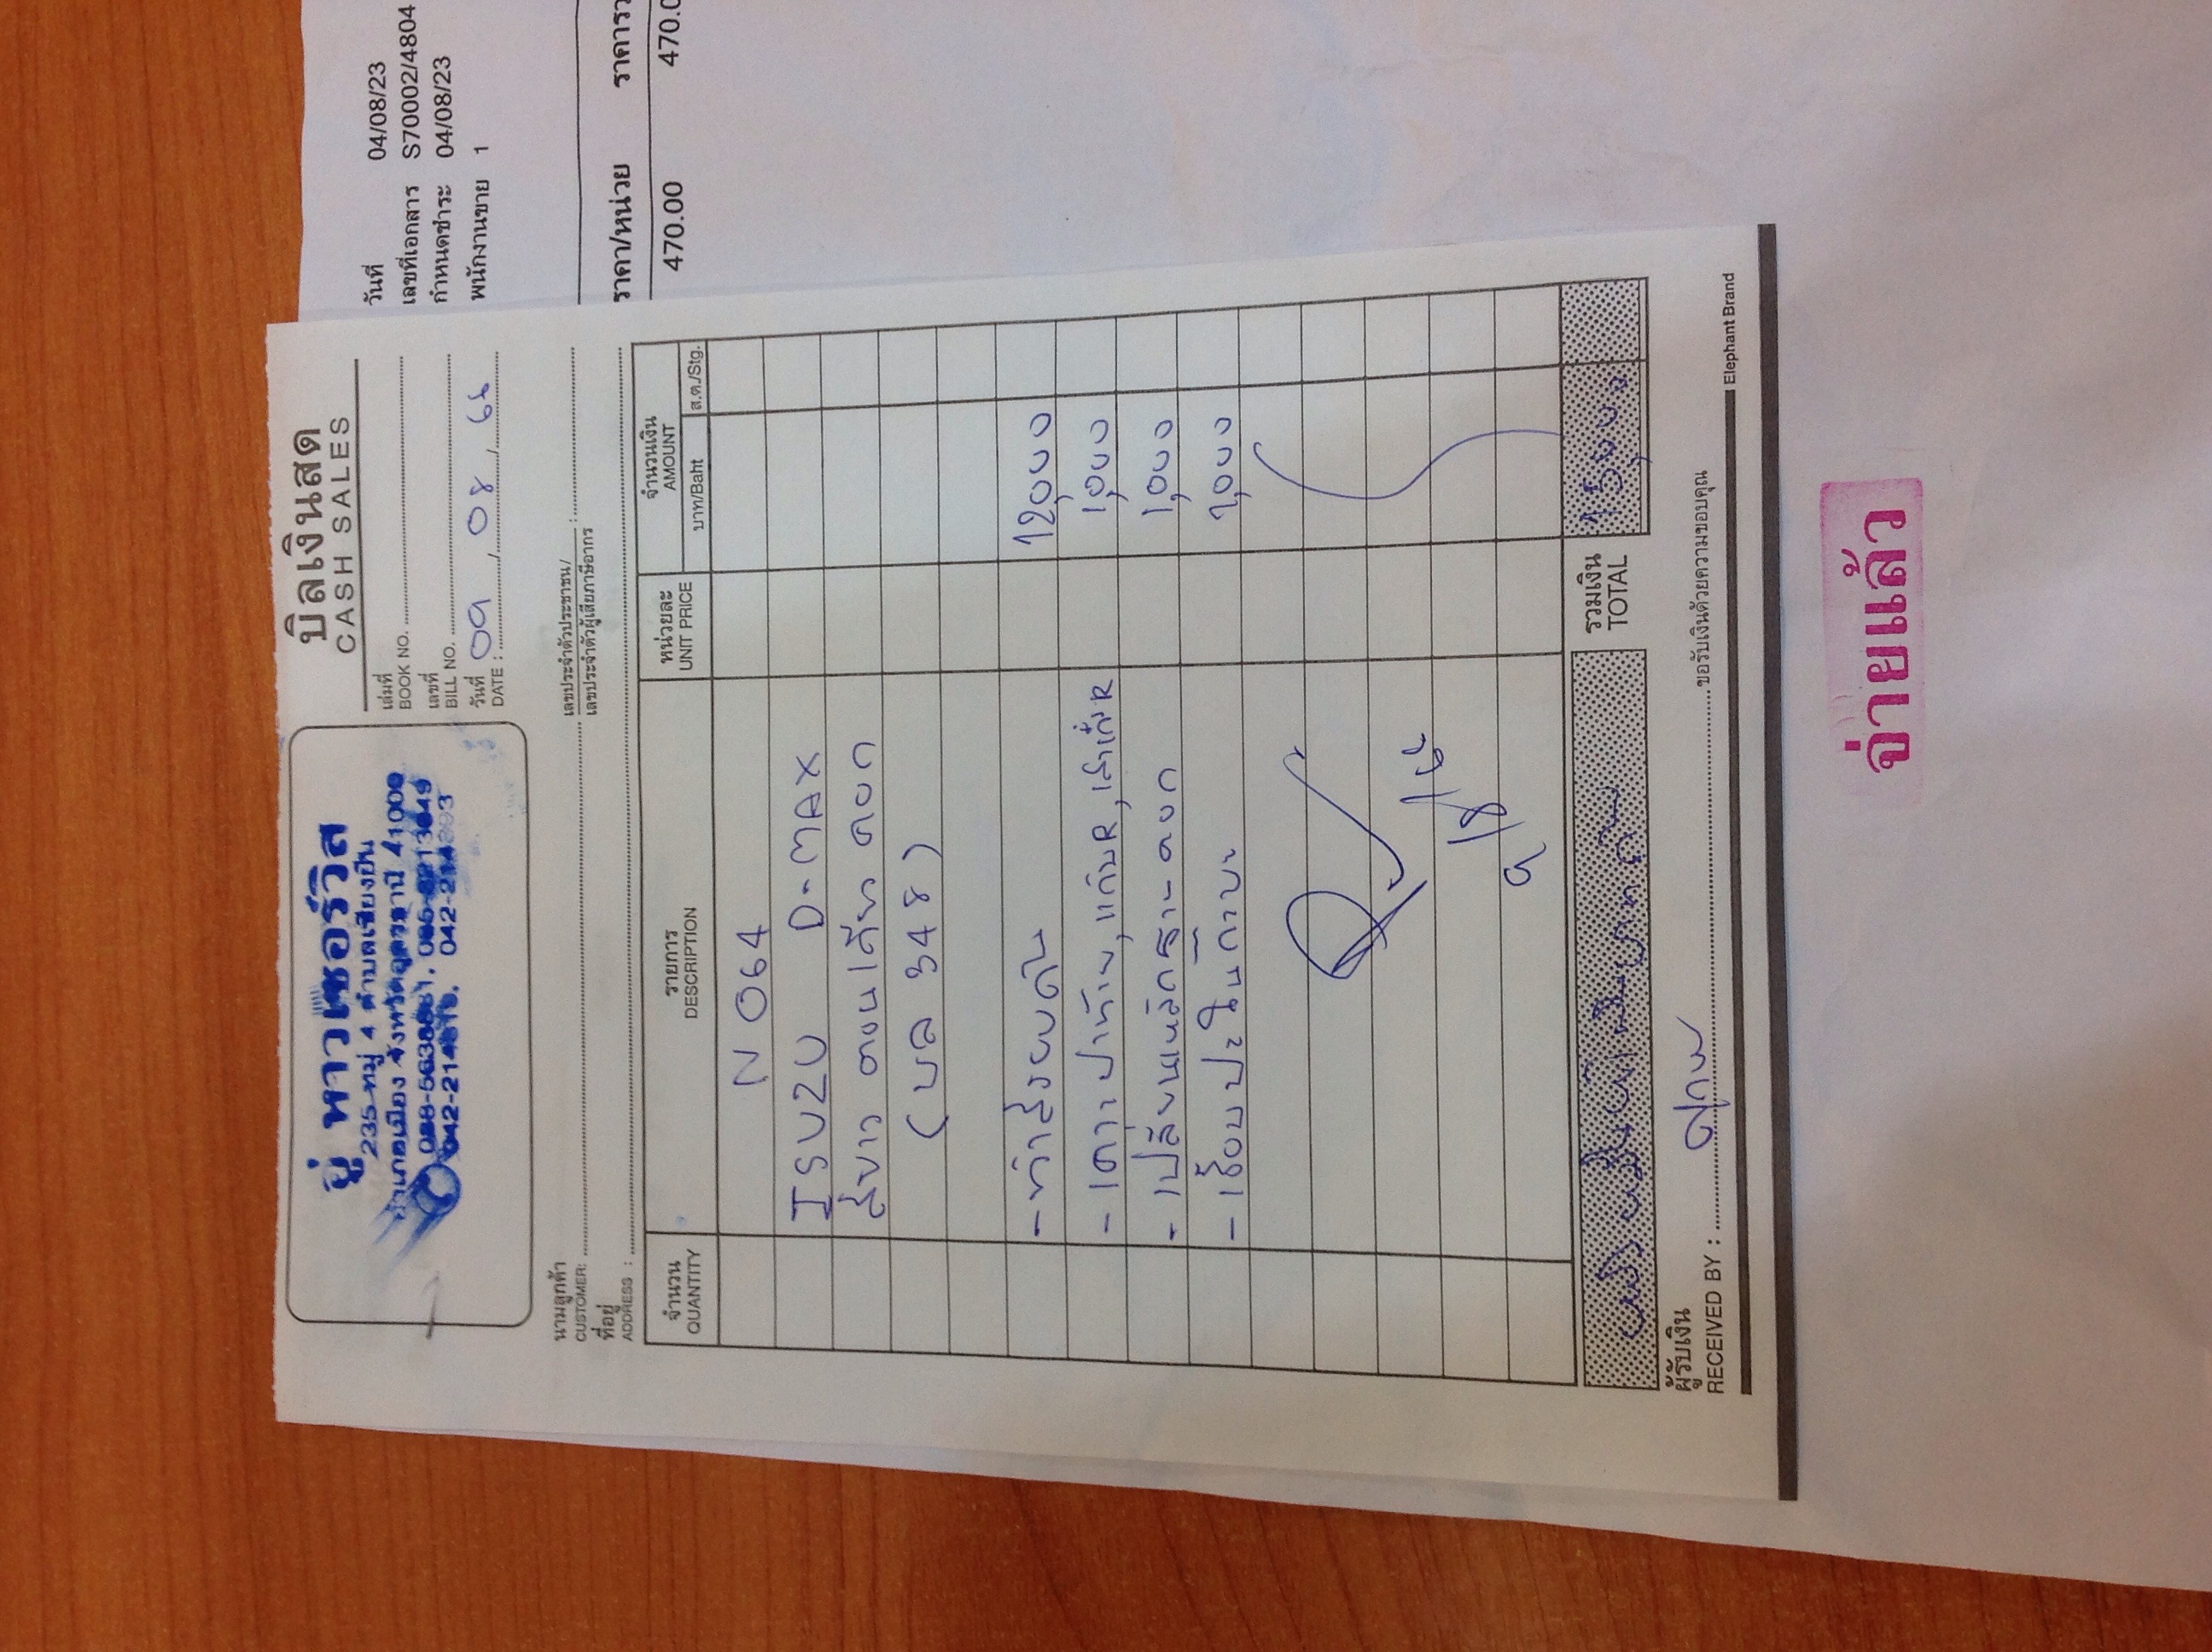 วันที่ 04/08/23
เลขที่เอกสาร S70002/4804
กำหนดชำระ 04/08/23
พนักงานขาย 1
ราคา/หน่วย
470.00
อู่ หาวเซอร์วิส
235 หมู่ 4 ตำบลเชียงยืน
อำเภอเมือง จังหวัดอุดรธานี 41000
บิลเงินสด
CASH SALES
เล่มที่
BOOK NO.
เลขที่
BILL NO.
วันที่
DATE : 09 / 08 / 66
นามลูกค้า
CUSTOMER:
เลขประจำตัวประชาชน/
เลขประจำตัวผู้เสียภาษีอากร :
ที่อยู่
ADDRESS :
จำนวน รายการ หน่วยละ จำนวนเงิน
QUANTITY DESCRIPTION UNIT PRICE AMOUNT
บาท/Baht ส.ต./Stg.
N 064
ISUZU D-MAX
สีขาว ตอนเดียว คอก
(บล 348)
- ทำสีรอบคัน 12,000
- เคาะ ปาท้าย, แก้มR, เสาเก๋งR 1,000
- เปลี่ยนเหล็กฐานคอก 1,000
- เชื่อมปะในกระบะ 1,000
9/8/66
รวมเงิน
TOTAL 15,000
ผู้รับเงิน
RECEIVED BY : ขอรับเงินด้วยความขอบคุณ
Elephant Brand
จ่ายแล้ว